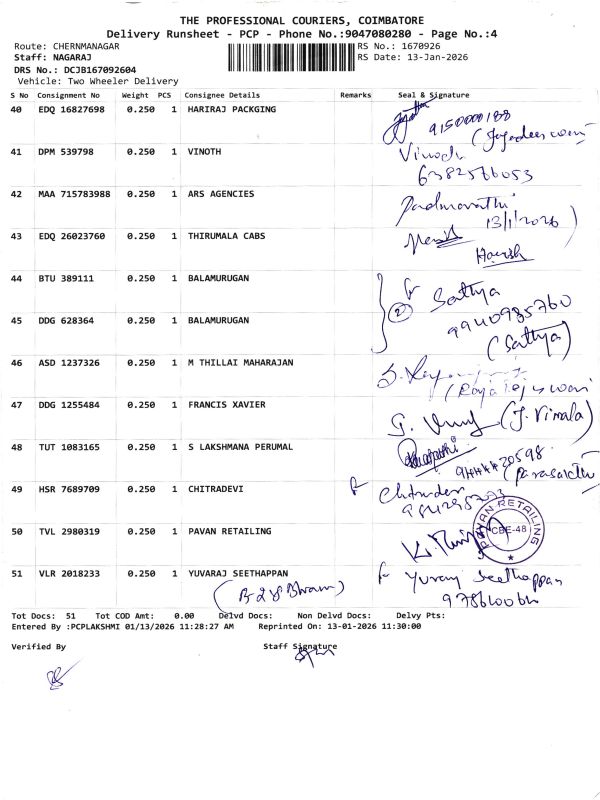 THE PROFESSIONAL COURIERS, COIMBATORE
Delivery Runsheet - PCP - Phone No.:9047080280 - Page No.:4
Route: CHERNMANAGAR RS No.: 1670926
Staff: NAGARAJ RS Date: 13-Jan-2026
DRS No.: DCJB167092604
Vehicle: Two Wheeler Delivery
S No Consignment No Weight PCS Consignee Details Remarks Seal & Signature
40 EDQ 16827698 0.250 1 HARIRAJ PACKGING
9150000188
41 DPM 539798 0.250 1 VINOTH Vinoth
6382566053
42 MAA 715783988 0.250 1 ARS AGENCIES Padmavathi
13/1/2026
43 EDQ 26023760 0.250 1 THIRUMALA CABS
Harish
44 BTU 389111 0.250 1 BALAMURUGAN Sathya
2 9940935760
45 DDG 628364 0.250 1 BALAMURUGAN (Sathya)
46 ASD 1237326 0.250 1 M THILLAI MAHARAJAN
47 DDG 1255484 0.250 1 FRANCIS XAVIER (J. Vimala)
48 TUT 1083165 0.250 1 S LAKSHMANA PERUMAL
49 HSR 7689709 0.250 1 CHITRADEVI
50 TVL 2980319 0.250 1 PAVAN RETAILING
PAVAN RETAILING
CBE-48
51 VLR 2018233 0.250 1 YUVARAJ SEETHAPPAN Yuvaraj Seethappan
Tot Docs: 51 Tot COD Amt: 0.00 Delvd Docs: Non Delvd Docs: Delvy Pts:
Entered By :PCPLAKSHMI 01/13/2026 11:28:27 AM Reprinted On: 13-01-2026 11:30:00
Verified By Staff Signature